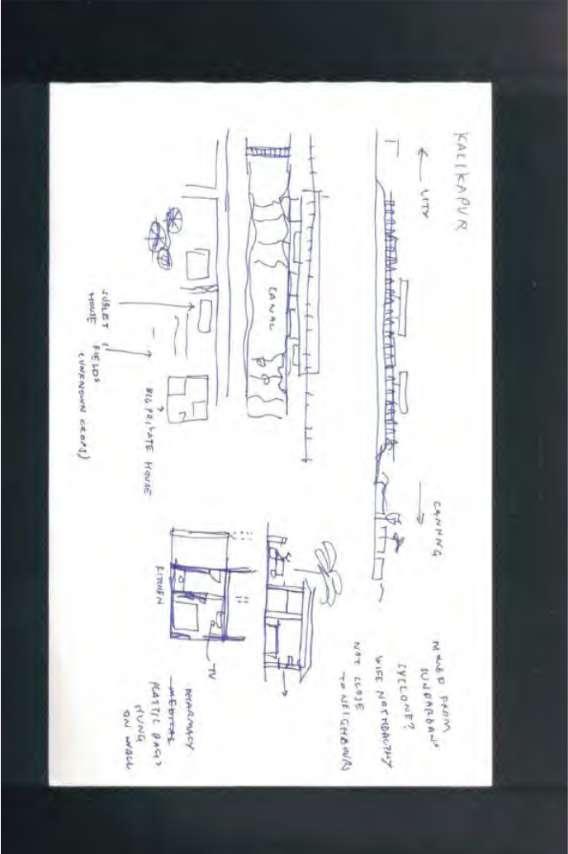 KALIKAPUR
← CITY
CANNING →
MOVED FROM
SUNDARBAN
CYCLONE?
WIFE NOT HEALTHY
NOT CLOSE
TO NEIGHBOURS
CANAL
SUBLET
HOUSE
FIELDS
(UNKNOWN CROPS)
BIG PRIVATE HOUSE
KITCHEN
TV
PHARMACY
MEDICAL
PLASTIC BAGS
HUNG
ON WALL